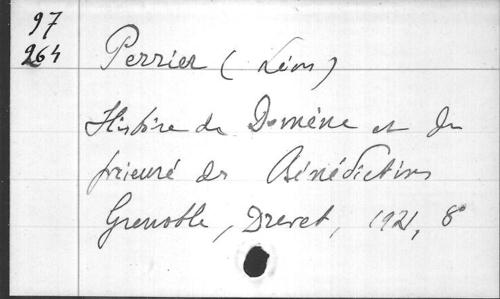 97
264
Perrier (Léon)
Histoire de Domène et du
prieuré des Bénédictins
Grenoble, Drevet, 1921, 8°